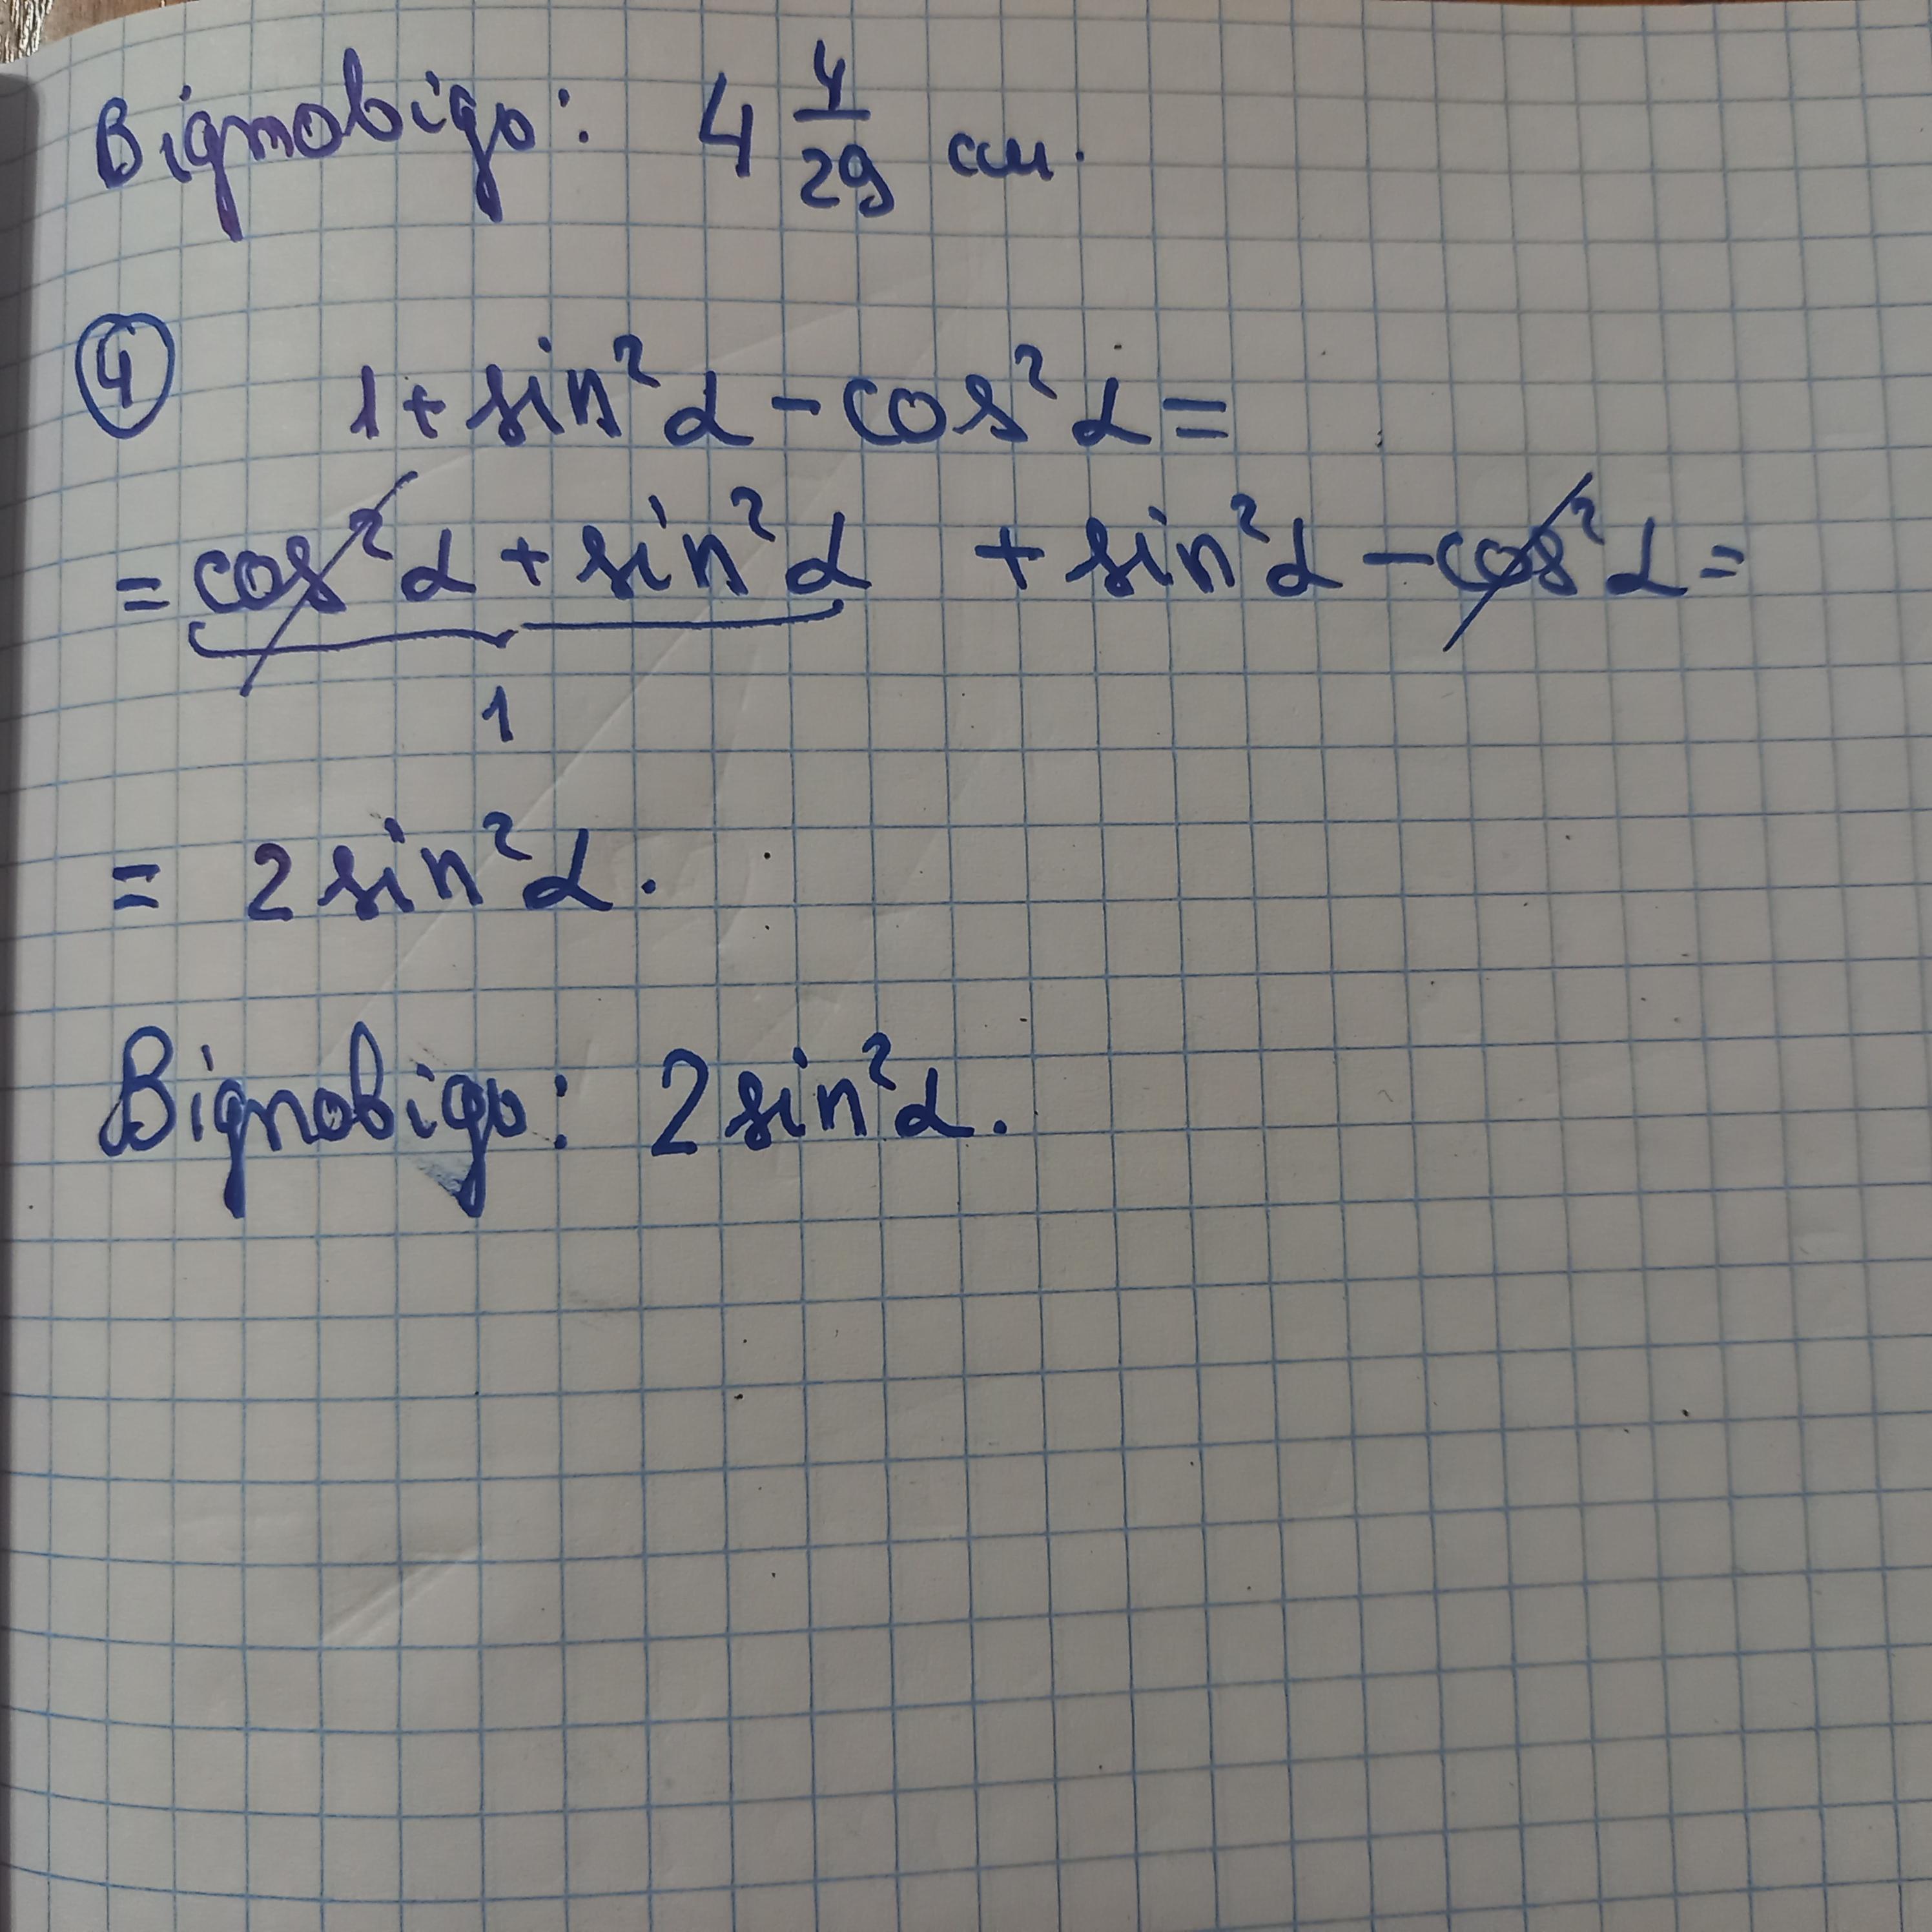 Відповідь: 4 4/29 см.
④ 1 + sin²α - cos²α =
= cos²α + sin²α + sin²α - cos²α =
1
= 2 sin²α.
Відповідь: 2 sin²α.